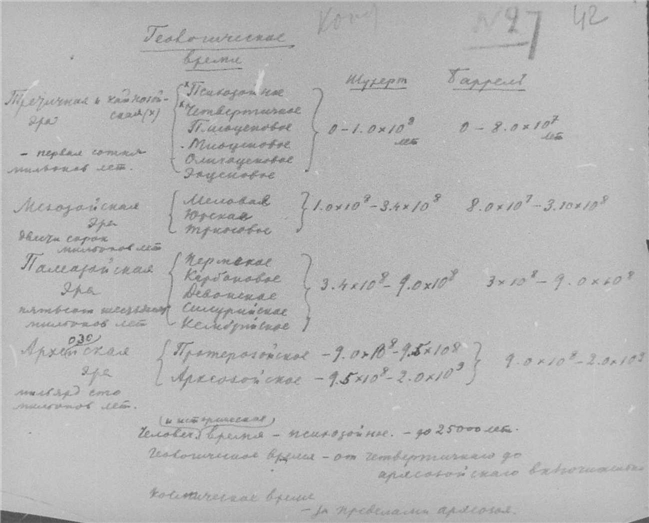 № 27 42
Геологическое
время
Шухерт Баррель
Третичная и кайнозой-
ская (х) эра
– первая сотня
мильонов лет.
х Психозойное
х Четвертичное
Плиоценовое
Миоценовое
Олигоценовое
Эоценовое
0 – 1.0×10⁸ лет
0 – 8.0×10⁷ лет
Мезозойская
эра
двести сорок
мильонов лет
Меловая
Юрская
Триасовое
1.0×10⁸ – 3.4×10⁸
8.0×10⁷ – 3.10×10⁸
Палеозойская
эра
пятьсот шестьдесят
мильонов лет
Пермское
Карбоновое
Девонское
Силурийское
Кембрийское
3.4×10⁸ – 9.0×10⁸
3×10⁸ – 9.0×10⁸
озо
Архейская
эра
мильярд сто
мильонов лет.
Протерозойское – 9.0×10⁸ – 9.5×10⁸
Археозойское – 9.5×10⁸ – 2.0×10⁹
9.0×10⁸ – 2.0×10⁹
(и историческое)
Человеч. время – психозойное. – до 25000 лет.
Геологическое время – от четвертичного до
археозойского включительно
Космическое время
– за пределами археозоя.